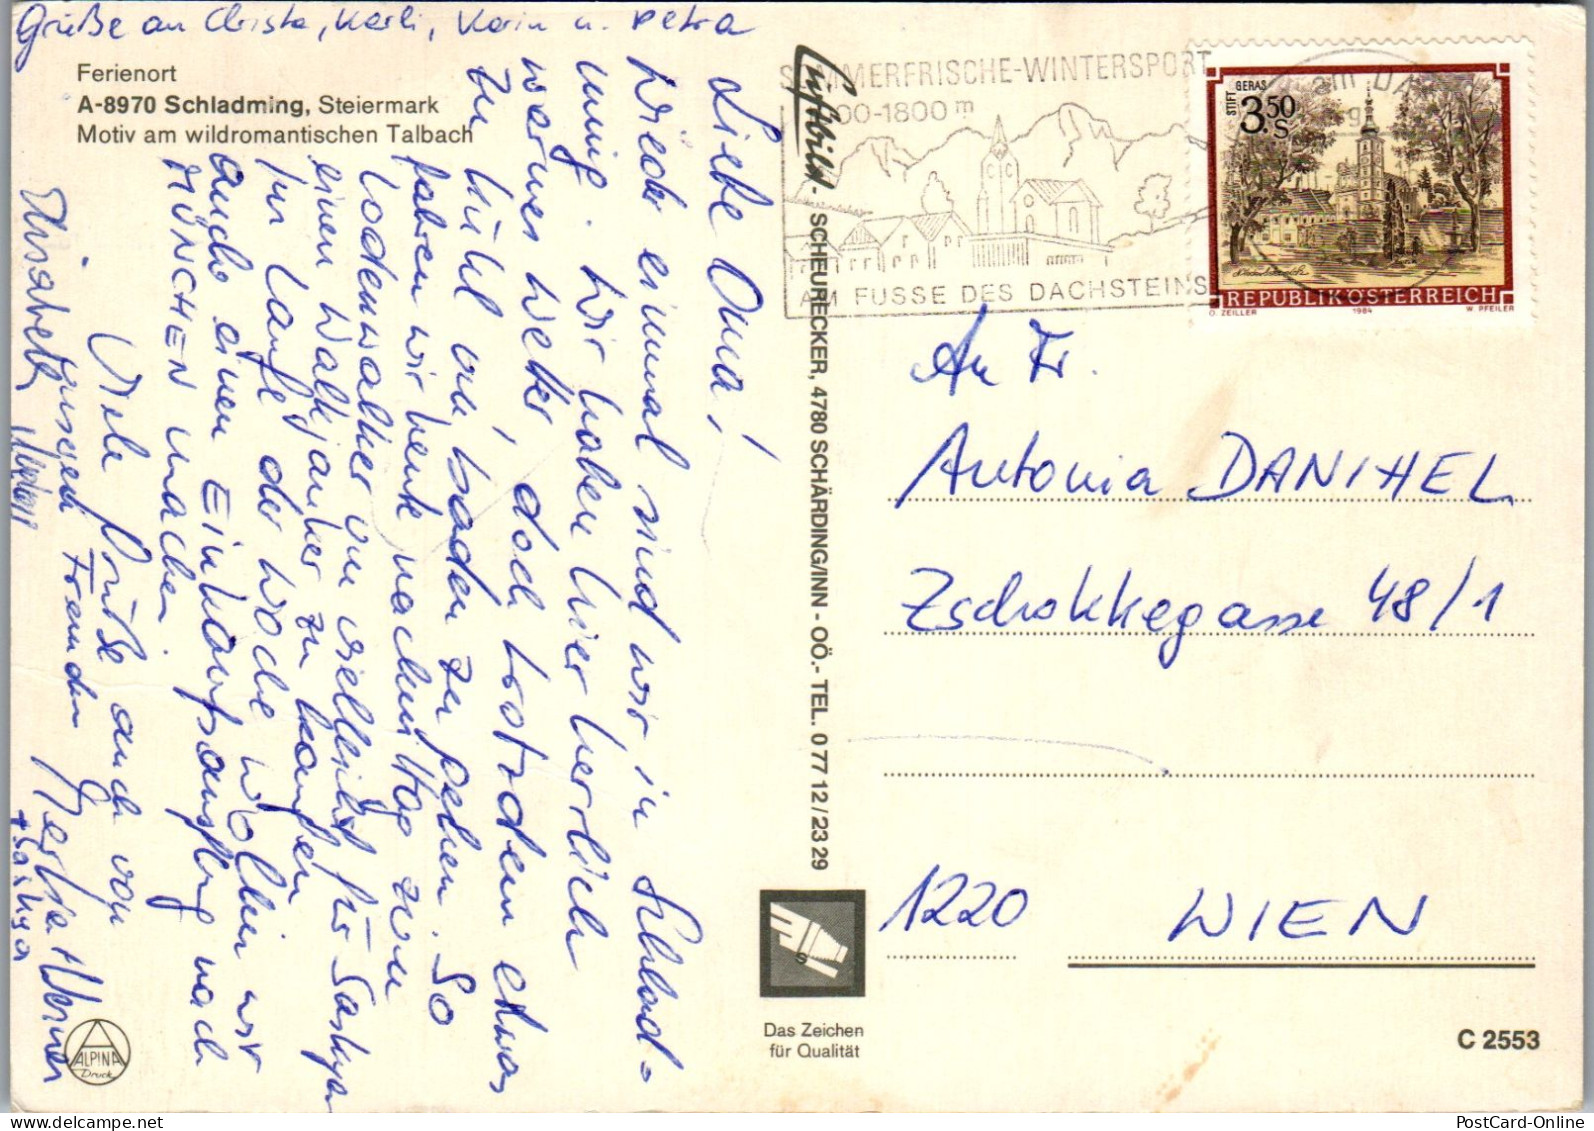 Grüße an Christa, Karli, Karin u. Petra
Ferienort
A-8970 Schladming, Steiermark
Motiv am wildromantischen Talbach
Liebe Oma!
Wieder einmal sind wir in Schlad=
ming. Wir haben hier herrlich
warmes Wetter, doch trotzdem etwas
zu kühl um baden zu gehen. So
fahren wir heute nachmittag zum
Lodenwalker um vielleicht für Saskya
einen Walkjanker zu kaufen.
Im Laufe der Woche wollen wir
auch einen Einkaufsausflug nach
MÜNCHEN machen.
Viele Grüße auch von
unseren Freunden
Elisabeth
Herta + Werner
+ Saskya
Luftbild - SCHEURECKER, 4780 SCHÄRDING/INN - OÖ.- TEL. 0 77 12 / 23 29
SOMMERFRISCHE-WINTERSPORT
00-1800 m
AM FUSSE DES DACHSTEINS
am DA
STIFT GERAS
3.50 S
REPUBLIK ÖSTERREICH
O. ZEILLER 1984 W. PFEILER
An Fr.
Antonia DANIHEL
Zschokkegasse 48/1
1220 WIEN
Das Zeichen
für Qualität
C 2553
ALPINA
Druck
PostCard-Online